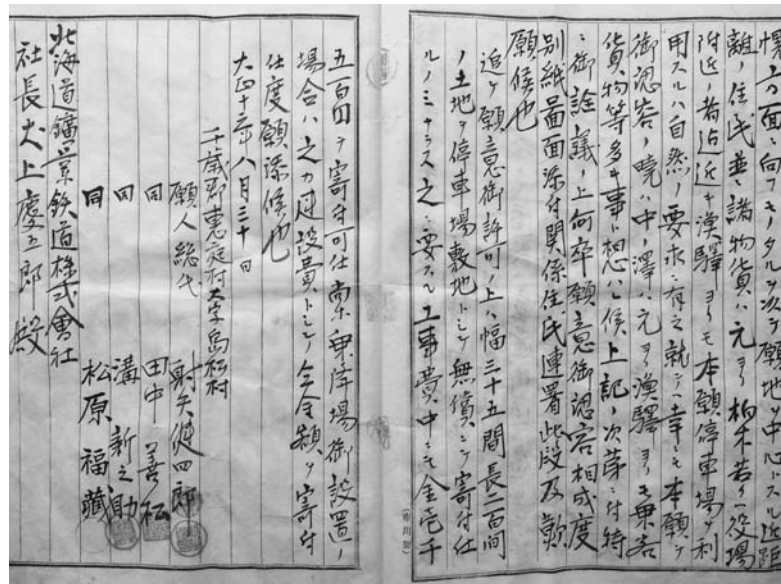 慢ノ方面ニ向フモノタルヲ次テ願地ヲ中心トスル近距
離ノ住民並ニ諸物貨ハ元ヨリ柏木若クハ役場
附近ノ者迠近キ漁驛ヨリモ本願停車場ヲ利
用スルハ自然ノ要求ニ有之就テハ幸ニモ本願ヲ
御認容ノ曉ハ中ノ澤ハ元ヨリ漁驛ヨリモ乗客
貨物等多キ事ト想ハレ候上記ノ次第ニ付特
ニ御詮議ノ上何卒願意御認容相成度
別紙畾面添付関係住民連署此段及歎
願候也
追テ願意御許可ノ上ハ幅三十五間長二百間
ノ土地ヲ停車場敷地トシテ無償ニテ寄付仕
ルノミナラス之ニ要スル工事費中ニモ金壱千
五百円ヲ寄付可仕尚乗降場御設置ノ
場合ハ之カ建設費トシテ全金額ヲ寄付
仕度願添候也
大正十二年八月三十日
千歳郡恵庭村大字島松村
願人総代 射矢健四郎
同 田中善松
同 溝新之助
同 松原福蔵
北海道鑛業鉄道株式會社
社長犬上慶五郎殿